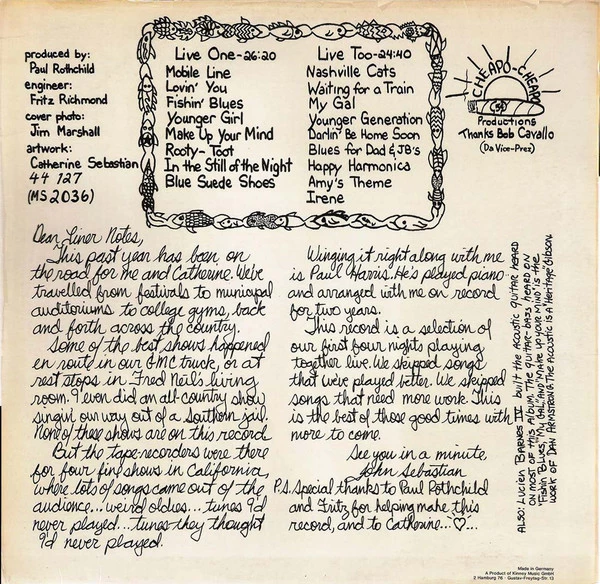 produced by:
Paul Rothchild
engineer:
Fritz Richmond
cover photo:
Jim Marshall
artwork:
Catherine Sebastian
44 127
(MS 2036)
Live One-26:20
Mobile Line
Lovin' You
Fishin' Blues
Younger Girl
Make Up Your Mind
Rooty-Toot
In the Still of the Night
Blue Suede Shoes
Live Too-24:40
Nashville Cats
Waiting for a Train
My Gal
Younger Generation
Darlin' Be Home Soon
Blues for Dad & JB's
Happy Harmonica
Amy's Theme
Irene
CHEAPO-CHEAPO
Productions
Thanks Bob Cavallo
(Da Vice-Prez)
Dear Liner Notes,
This past year has been on
the road for me and Catherine. We've
travelled from festivals to municipal
auditoriums to college gyms, back
and forth across the country.
Some of the best shows happened
en route in our GMC truck, or at
rest stops in Fred Neil's living
room. I even did an all-country show
singin' our way out of a Southern jail.
None of these shows are on this record
But the tape-recorders were there
for four fine shows in California
where lots of songs came out of the
audience... weird oldies... tunes I'd
never played... tunes they thought
I'd never played.
Winging it right along with me
is Paul Harris. He's played piano
and arranged with me on record
for two years.
This record is a selection of
our first four nights playing
together live. We skipped songs
that we've played better. We skipped
songs that need more work. This
is the best of those good times with
more to come.
See you in a minute,
John Sebastian
P.S. Special thanks to Paul Rothchild
and Fritz for helping make this
record, and to Catherine...♡...
ALSO: LUCIEN BARNES IV built the acoustic guitar heard
on most of this album. The guitar-bass heard on
"Fishin' Blues," "My Gal," and "Make Up Your Mind" is the
work of Dan Armstrong. The acoustic is a "Heritage" Gibson.
Made in Germany
A Product of Kinney Music GmbH
2 Hamburg 76 · Gustav-Freytag-Str. 13